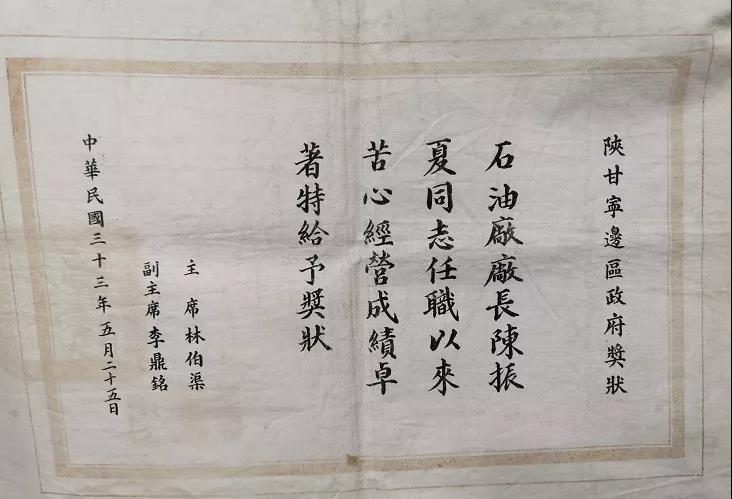 陝甘寧邊區政府獎狀
石油廠廠長陳振
夏同志任職以來
苦心經營成績卓
著特給予獎狀
主席林伯渠
副主席李鼎銘
中華民國三十三年五月二十五日